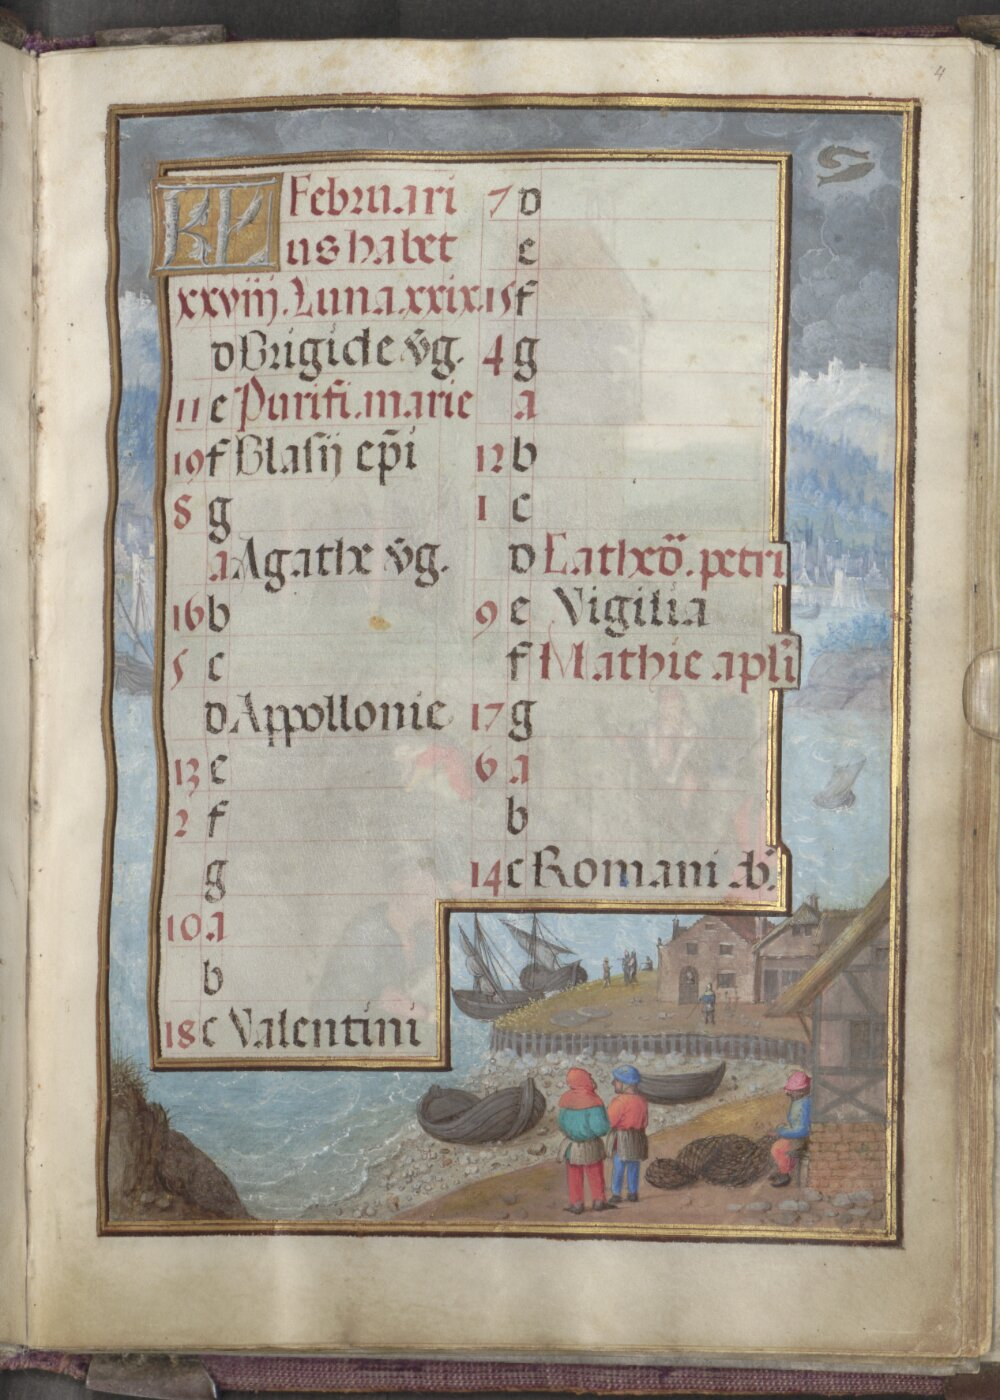 4
KL Februari
us habet
xxviij. Luna. xxix.
d Brigide v̄g.
11 e Purifi. marie
19 f Blasij ep̄i
8 g
a Agathe v̄g.
16 b
5 c
d Appollonie
13 e
2 f
g
10 a
b
18 c Valentini
7 d
e
15 f
4 g
a
12 b
1 c
d Cathed̄. petri
9 e Vigilia
f Mathie apl̄i
17 g
6 a
b
14 c Romani ab̄.